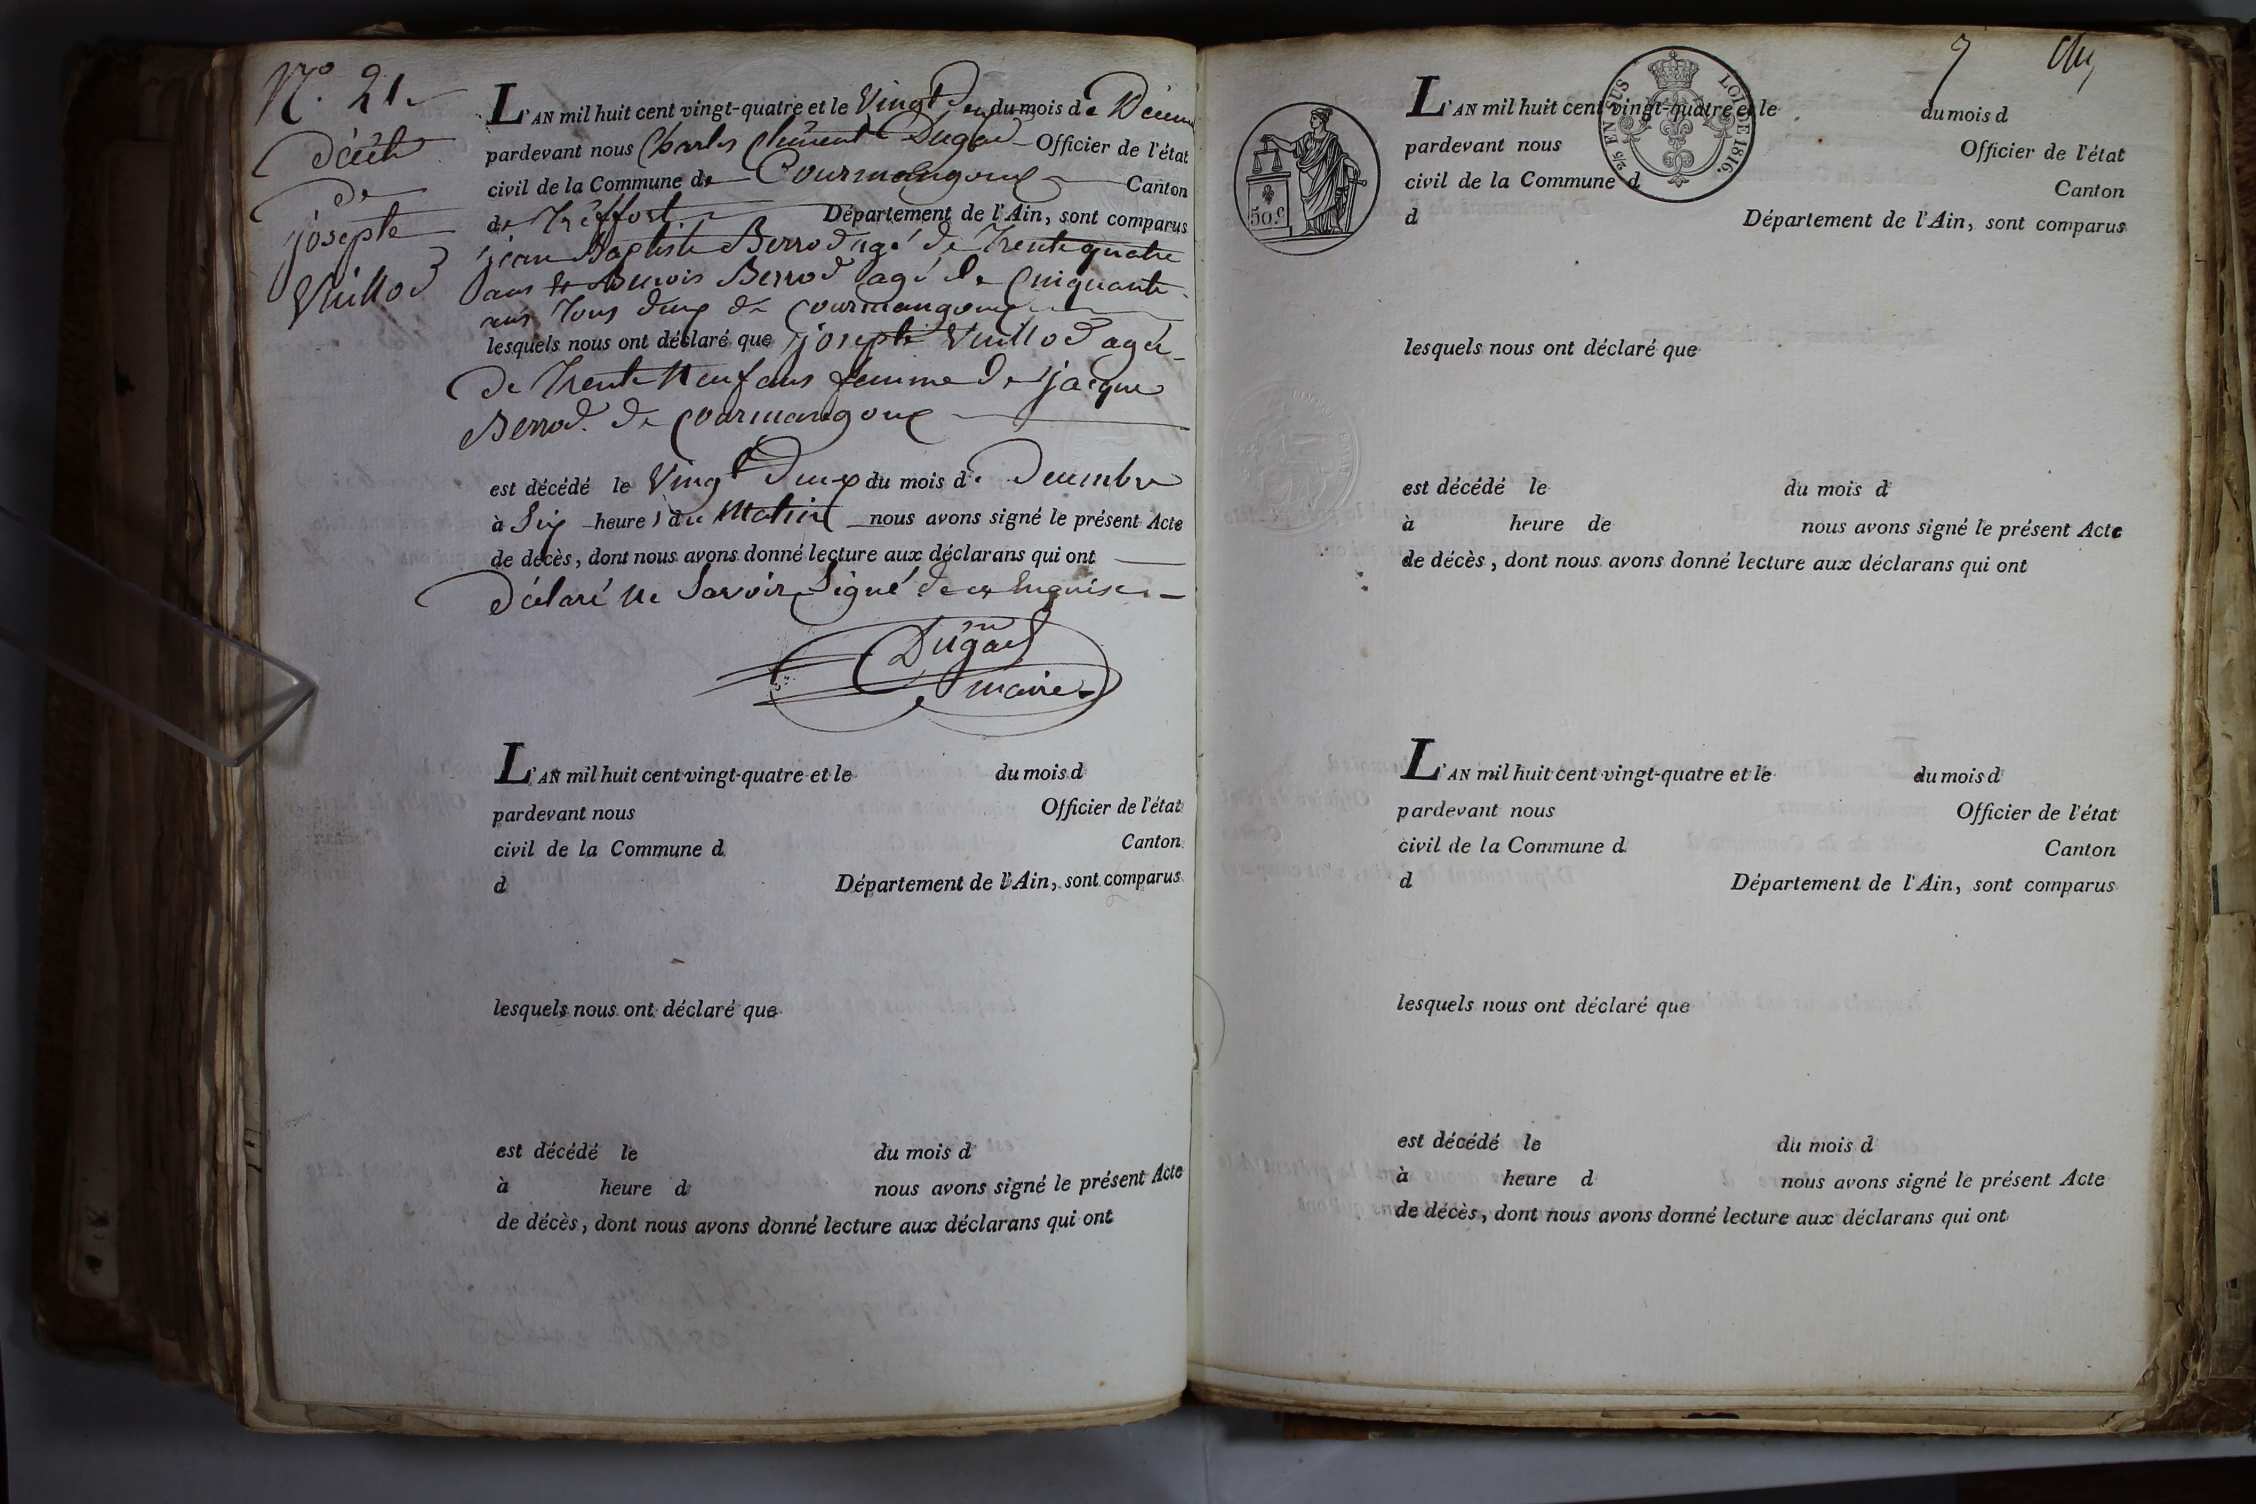 N.o 21.
décès
de
josephte
Vuillod
L'AN mil huit cent vingt-quatre et le Vingt deux du mois de Décem
pardevant nous Charles Clément Dugad Officier de l'état
civil de la Commune de Courmangoux Canton
de Tréffort Département de l'Ain, sont comparus
jean Baptiste Berrod agé de Trente quatre
ans et Benois Berrod agé de Cinquante
ans Tous deux de Courmangoux
lesquels nous ont déclaré que josephte Vuillod agée
de Trente Neuf ans femme de jacque
Berrod. de Courmangoux
est décédé le Vingt Deux du mois de Decembre
à Six heures du Matin nous avons signé le présent Acte
de décès, dont nous avons donné lecture aux déclarans qui ont
déclaré ne Savoir Signé de ce Enquis
Dugad
maire
L'AN mil huit cent vingt-quatre et le du mois d
pardevant nous Officier de l'état
civil de la Commune d Canton
d Département de l'Ain, sont comparus
lesquels nous ont déclaré que
est décédé le du mois d
à heure d nous avons signé le présent Acte
de décès, dont nous avons donné lecture aux déclarans qui ont
9
50.c
2/5 EN SUS LOI DE 1816.
L'AN mil huit cent vingt-quatre et le du mois d
pardevant nous Officier de l'état
civil de la Commune d Canton
d Département de l'Ain, sont comparus
lesquels nous ont déclaré que
est décédé le du mois d
à heure de nous avons signé le présent Acte
de décès, dont nous avons donné lecture aux déclarans qui ont
L'AN mil huit cent vingt-quatre et le du mois d
pardevant nous Officier de l'état
civil de la Commune d Canton
d Département de l'Ain, sont comparus
lesquels nous ont déclaré que
est décédé le du mois d
à heure d nous avons signé le présent Acte
de décès, dont nous avons donné lecture aux déclarans qui ont